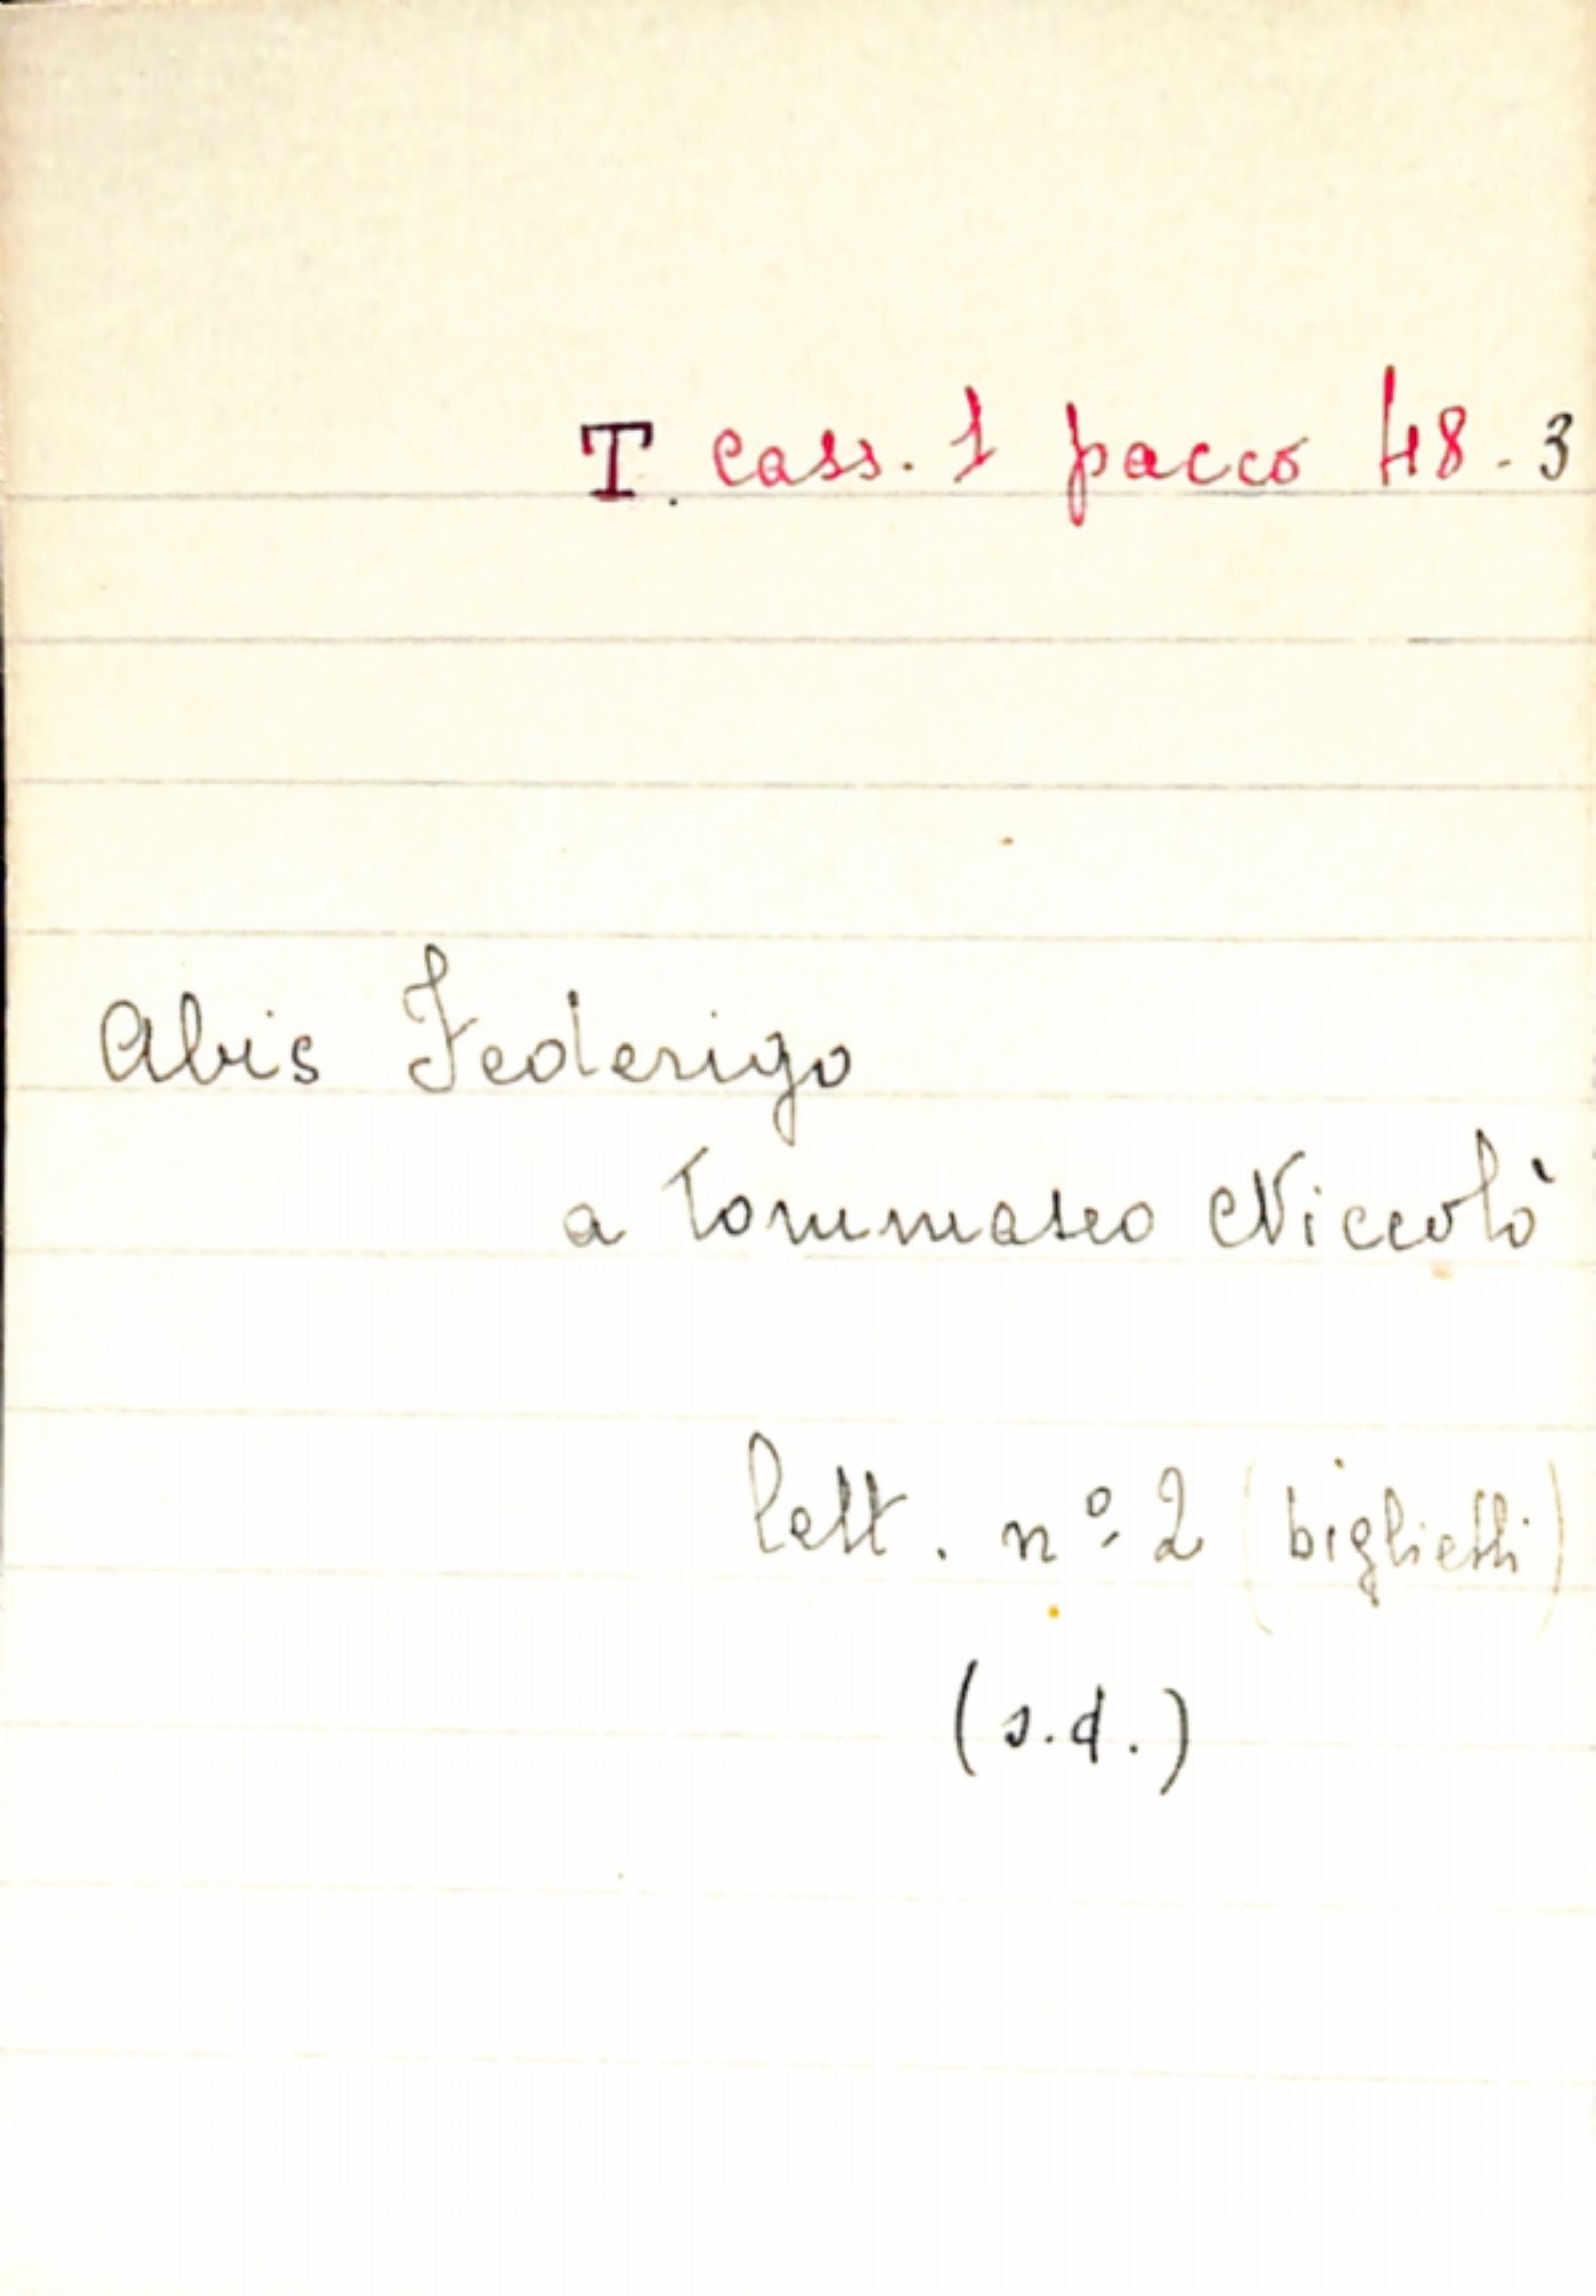 T. Cass. 1 pacco 48.3
Abis Federigo
a Tommaseo Niccolò
lett. nº 2 (biglietti)
(s.d.)